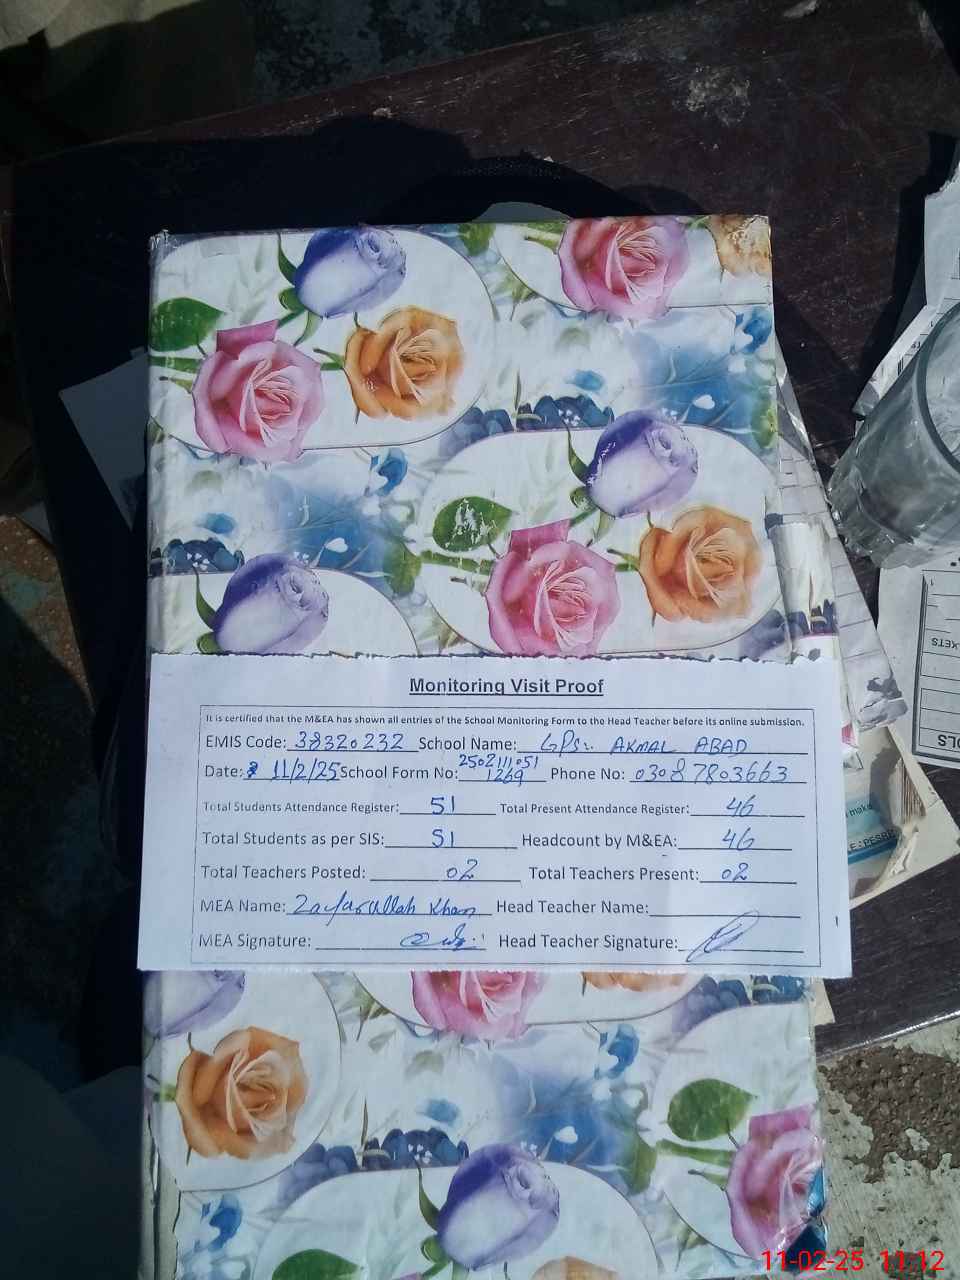 Monitoring Visit Proof
It is certified that the M&EA has shown all entries of the School Monitoring Form to the Head Teacher before its online submission.
EMIS Code: 38320232 School Name: GPS:. AKMAL ABAD
Date: 11/2/25 School Form No: 2502111051 1269 Phone No: 03087803663
Total Students Attendance Register: 51 Total Present Attendance Register: 46
Total Students as per SIS: 51 Headcount by M&EA: 46
Total Teachers Posted: 02 Total Teachers Present: 02
MEA Name: Zafarullah Khan Head Teacher Name:
MEA Signature: Head Teacher Signature:
make
11-02-25 11:12